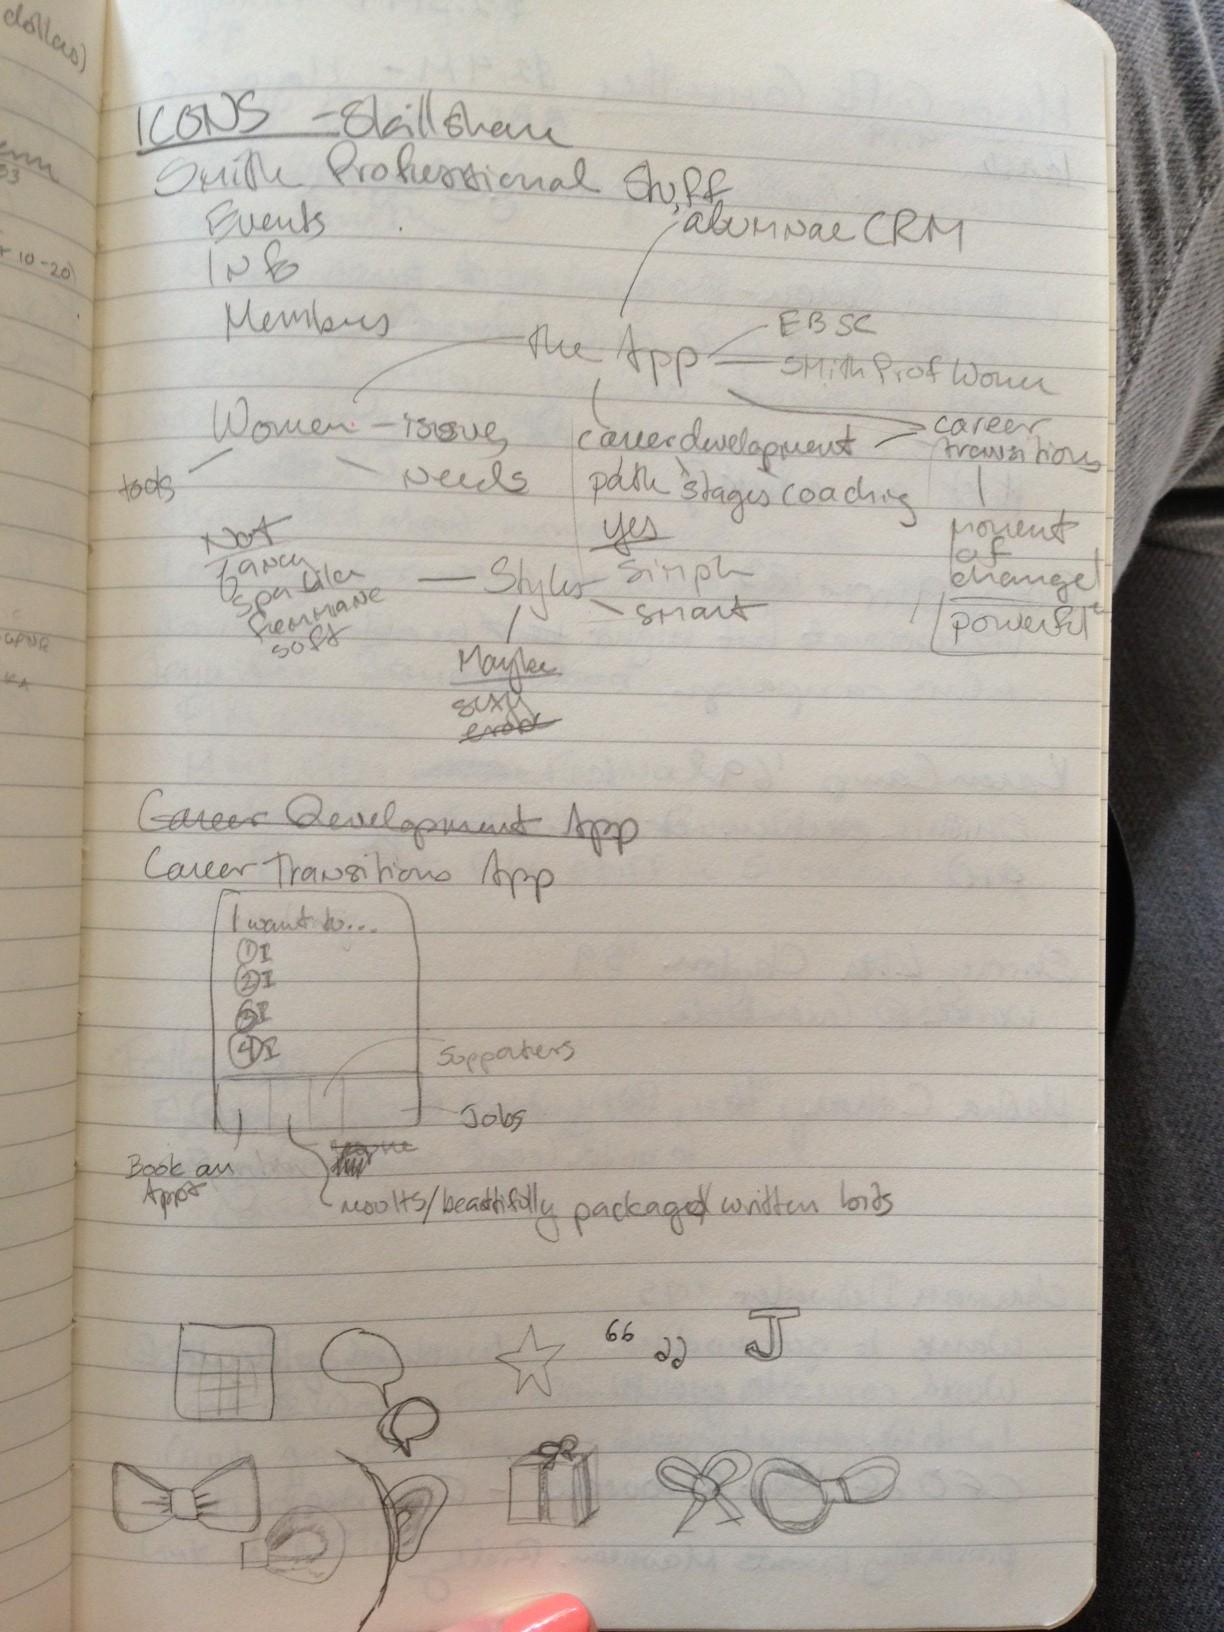 dollars)
ICONS - Skillshare
Smith Professional Stuff
Events
Info
Members
alumnae CRM
the App
EBSC
Smith Prof Women
Women - issues,
needs
tools
career development
path stages coaching
career
transitions
moment
of
change!
powerful
yes
Not
fancy
sparkly
soft
Style
simple
smart
Maybe
sexy
Career Development App
Career Transitions App
I want to...
① I
② I
③ I
④ I
Supporters
Jobs
Book an
Appt
results/beautifully packaged written bits
66
J
+ 10-20)